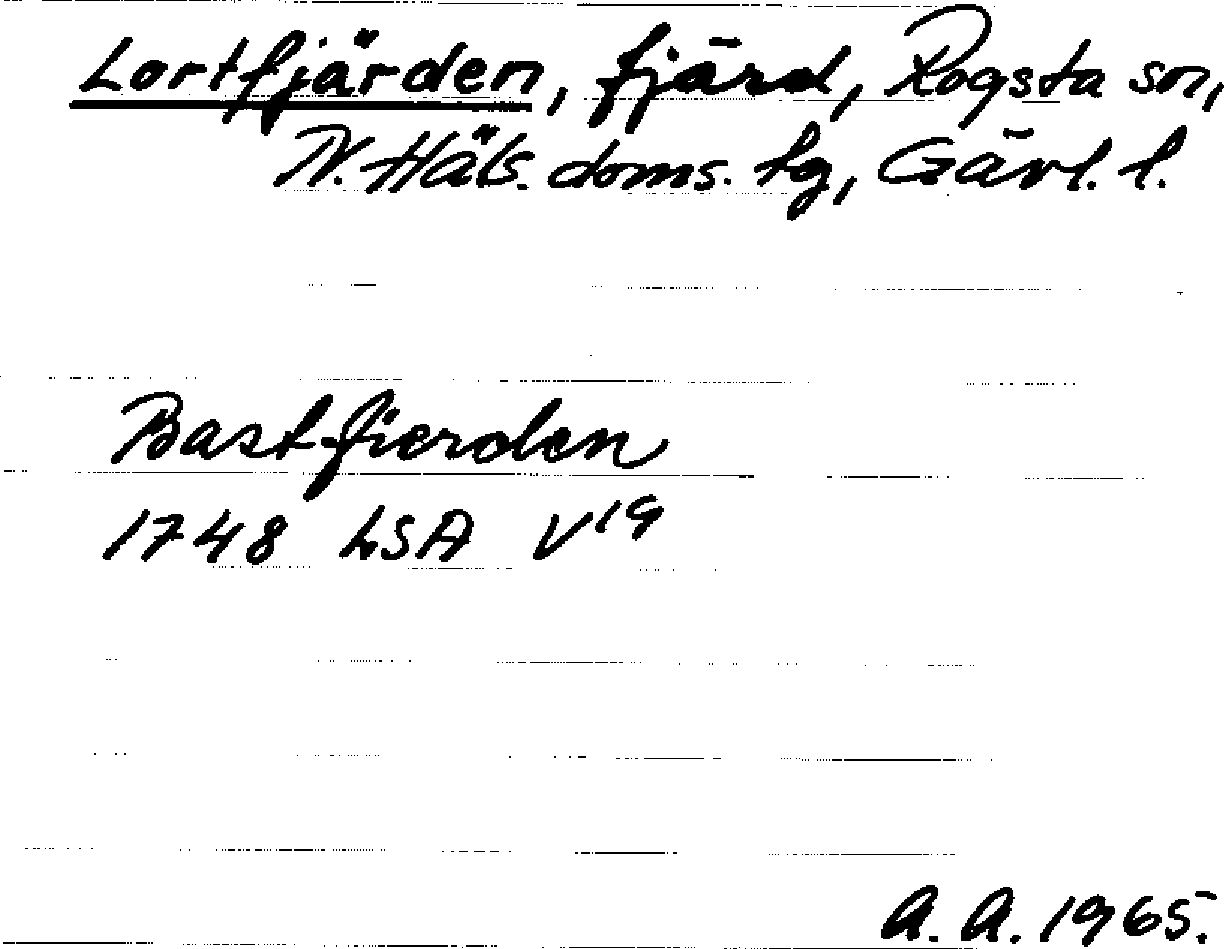 Lortfjärden, fjärd, Rogsta sn,
N. Häls. doms. tg, Gävl. l.
Bast-fierden
1748 LSA V¹⁹
A. A. 1965.